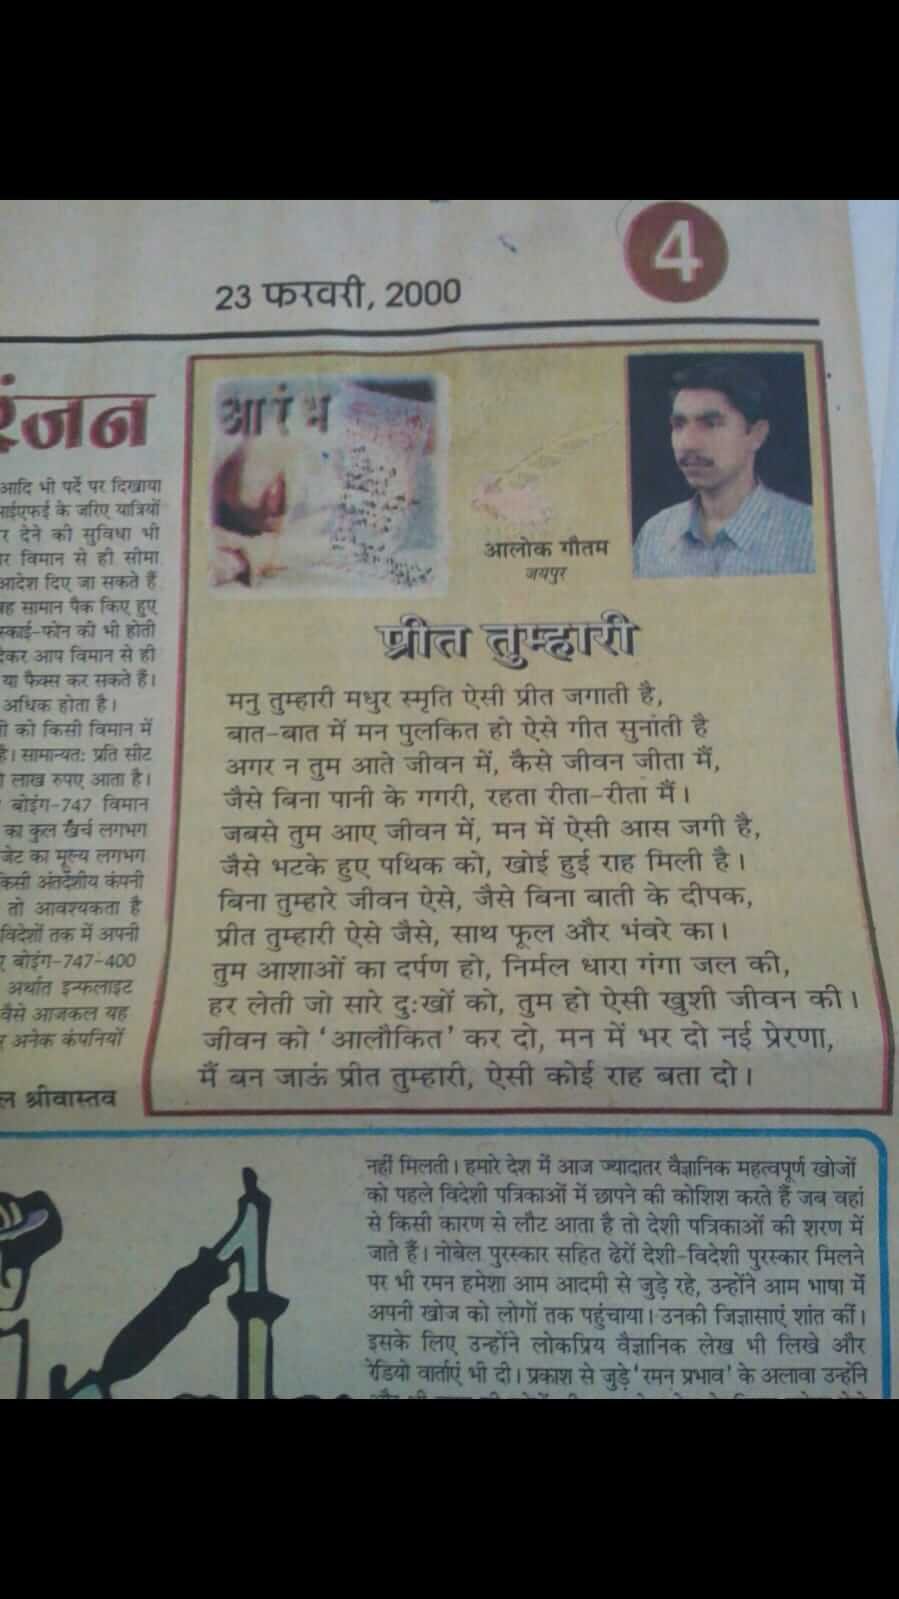 4
23 फरवरी, 2000
रंजन
आदि भी पर्दे पर दिखाया
के जरिए यात्रियों
देने की सुविधा भी
विमान से ही सीमा
आदेश दिए जा सकते हैं
सामान पैक किए हुए
स्काई-फोन की भी होती
देकर आप विमान से ही
या फैक्स कर सकते हैं।
अधिक होता है।
को किसी विमान में
है। सामान्यत: प्रति सीट
लाख रुपए आता है।
बोइंग-747 विमान
का कुल खर्च लगभग
जेट का मूल्य लगभग
किसी अंतर्देशीय कंपनी
तो आवश्यकता है
विदेशों तक में अपनी
बोइंग-747-400
अर्थात इन्फलाइट
वैसे आजकल यह
अनेक कंपनियों
श्रीवास्तव
आरंभ
आलोक गौतम
जयपुर
प्रीत तुम्हारी
मनु तुम्हारी मधुर स्मृति ऐसी प्रीत जगाती है,
बात-बात में मन पुलकित हो ऐसे गीत सुनांती है
अगर न तुम आते जीवन में, कैसे जीवन जीता मैं,
जैसे बिना पानी के गगरी, रहता रीता-रीता मैं।
जबसे तुम आए जीवन में, मन में ऐसी आस जगी है,
जैसे भटके हुए पथिक को, खोई हुई राह मिली है।
बिना तुम्हारे जीवन ऐसे, जैसे बिना बाती के दीपक,
प्रीत तुम्हारी ऐसे जैसे, साथ फूल और भंवरे का।
तुम आशाओं का दर्पण हो, निर्मल धारा गंगा जल की,
हर लेती जो सारे दु:खों को, तुम हो ऐसी खुशी जीवन की।
जीवन को 'आलौकित' कर दो, मन में भर दो नई प्रेरणा,
मैं बन जाऊं प्रीत तुम्हारी, ऐसी कोई राह बता दो।
नहीं मिलती। हमारे देश में आज ज्यादातर वैज्ञानिक महत्वपूर्ण खोजों
को पहले विदेशी पत्रिकाओं में छापने की कोशिश करते हैं जब वहां
से किसी कारण से लौट आता है तो देशी पत्रिकाओं की शरण में
जाते हैं। नोबेल पुरस्कार सहित ढेरों देशी-विदेशी पुरस्कार मिलने
पर भी रमन हमेशा आम आदमी से जुड़े रहे, उन्होंने आम भाषा में
अपनी खोज को लोगों तक पहुंचाया। उनकी जिज्ञासाएं शांत कीं।
इसके लिए उन्होंने लोकप्रिय वैज्ञानिक लेख भी लिखे और
रेडियो वार्ताएं भी दी। प्रकाश से जुड़े 'रमन प्रभाव' के अलावा उन्होंने